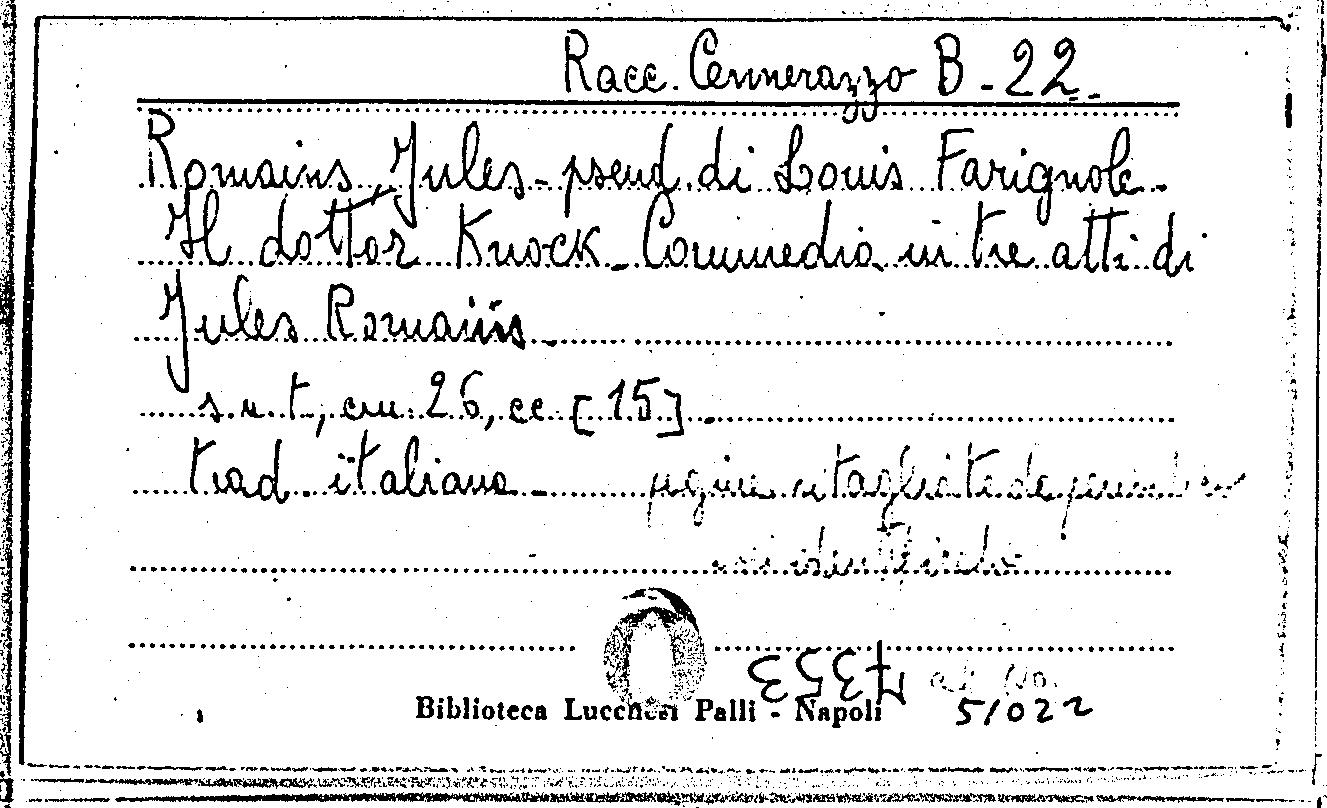 Racc. Cennerazzo B - 22.
Romains, Jules - pseud. di Louis Farignole -
Il dottor Knock - Commedia in tre atti di
Jules Romains -
s.n.t., cm. 26, cc [15] -
trad. italiana - pagine ritagliate da
non identificato
7353
51022
Biblioteca Lucchesi Palli - Napoli